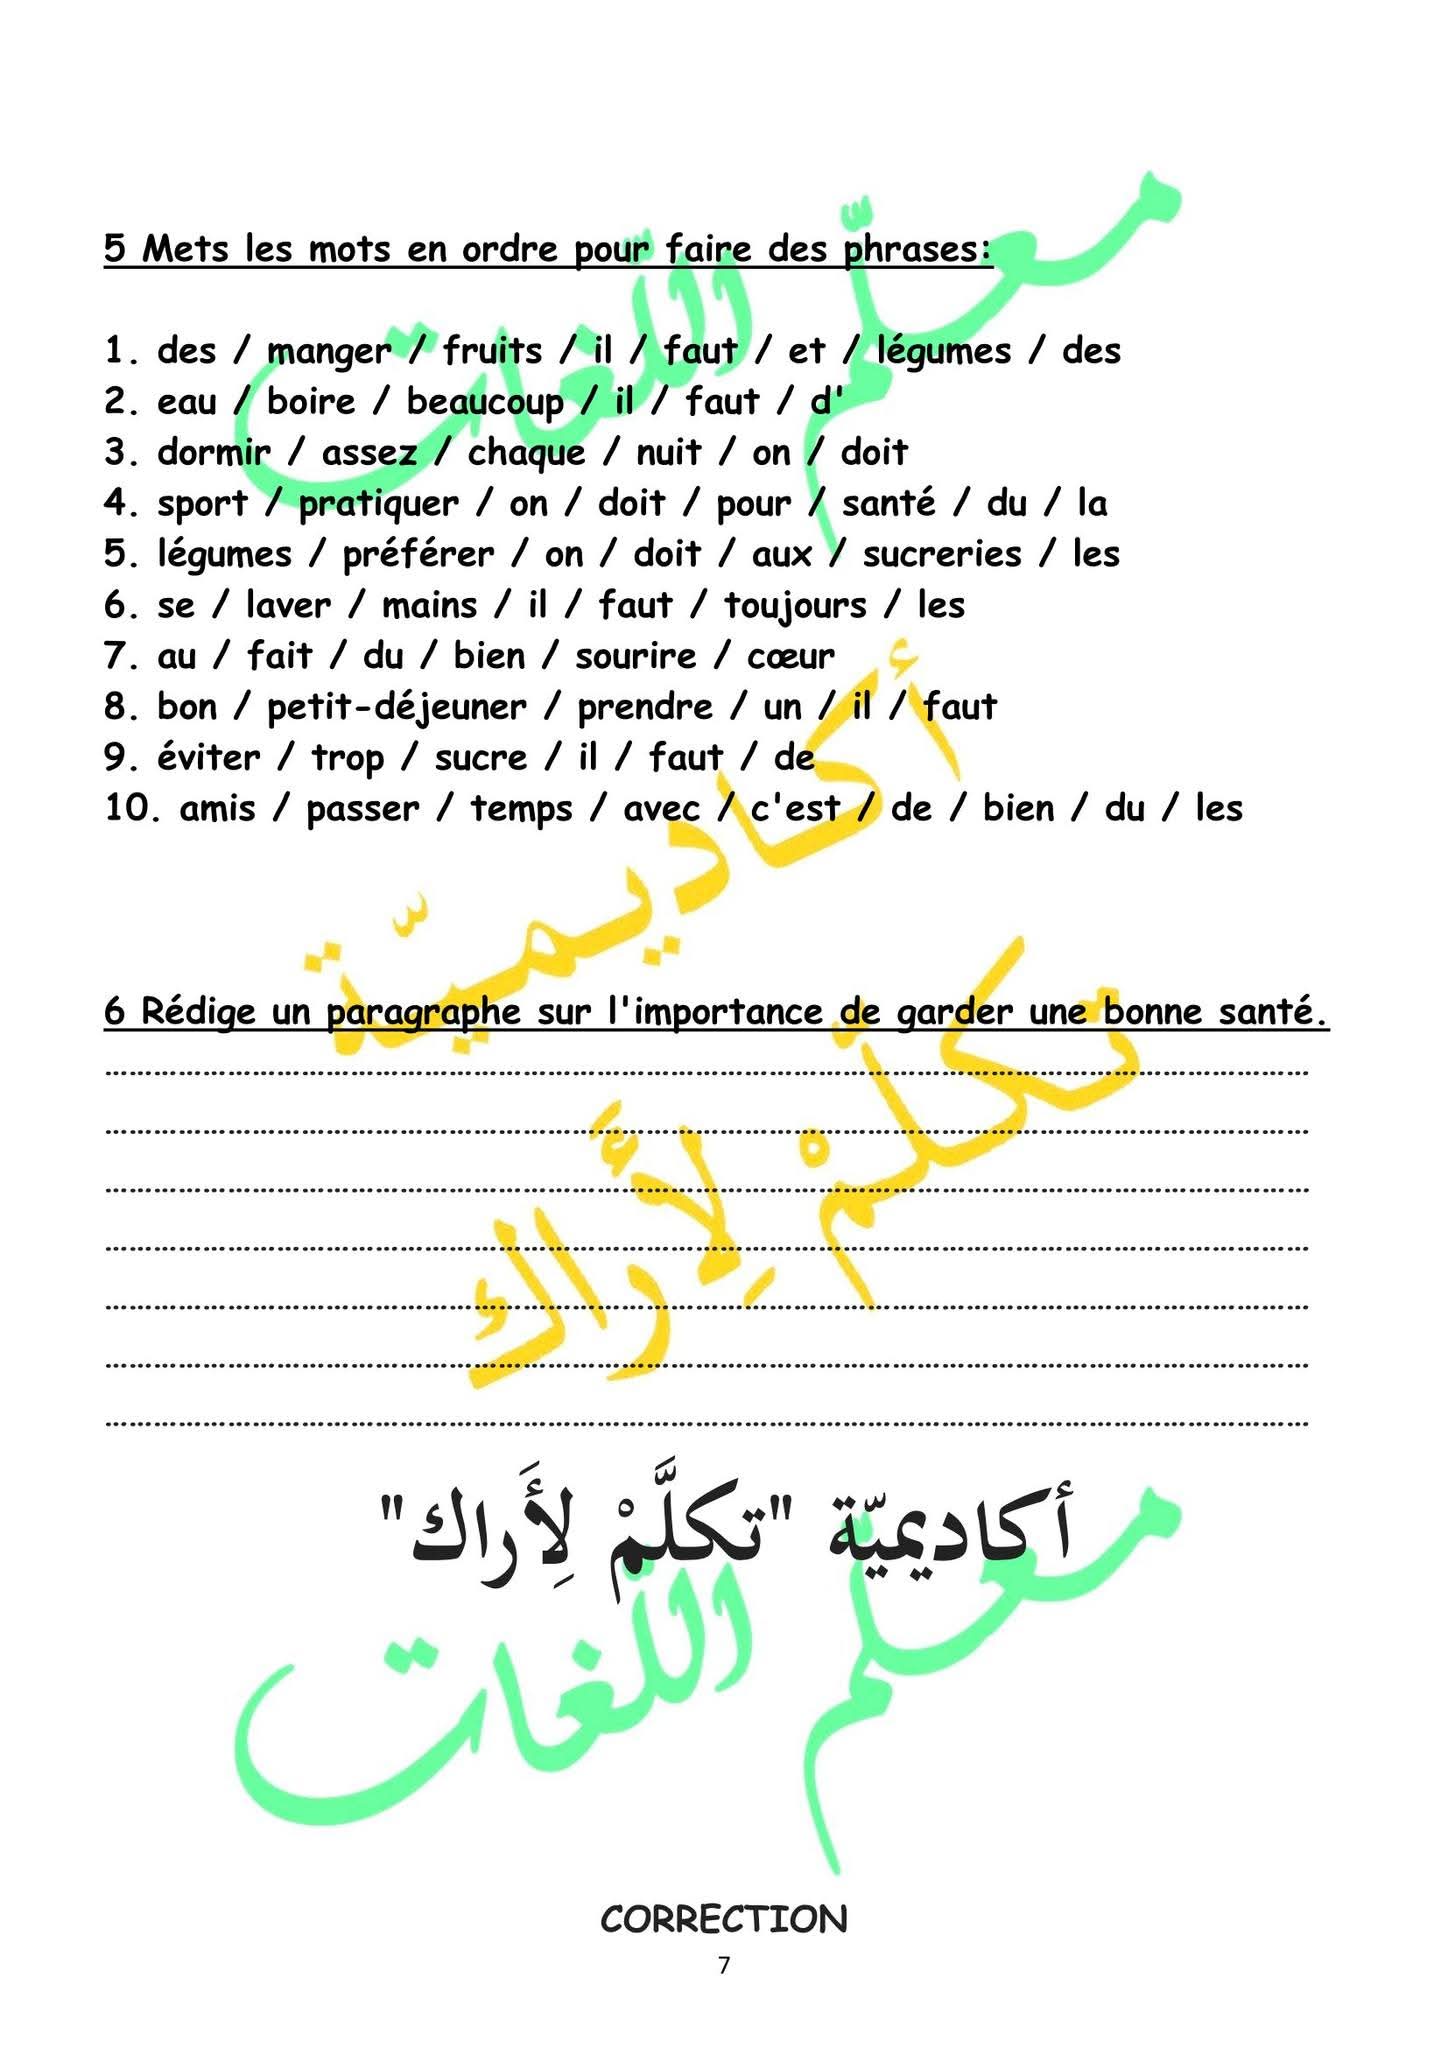 5 Mets les mots en ordre pour faire des phrases:
1. des / manger / fruits / il / faut / et / légumes / des
2. eau / boire / beaucoup / il / faut / d'
3. dormir / assez / chaque / nuit / on / doit
4. sport / pratiquer / on / doit / pour / santé / du / la
5. légumes / préférer / on / doit / aux / sucreries / les
6. se / laver / mains / il / faut / toujours / les
7. au / fait / du / bien / sourire / cœur
8. bon / petit-déjeuner / prendre / un / il / faut
9. éviter / trop / sucre / il / faut / de
10. amis / passer / temps / avec / c'est / de / bien / du / les
6 Rédige un paragraphe sur l'importance de garder une bonne santé.
أكاديميّة "تكلَّمْ لِأَراك"
معلّم اللّغات
أكاديميّة
تكلّمْ لِأَراك
معلّم اللّغات
CORRECTION
7